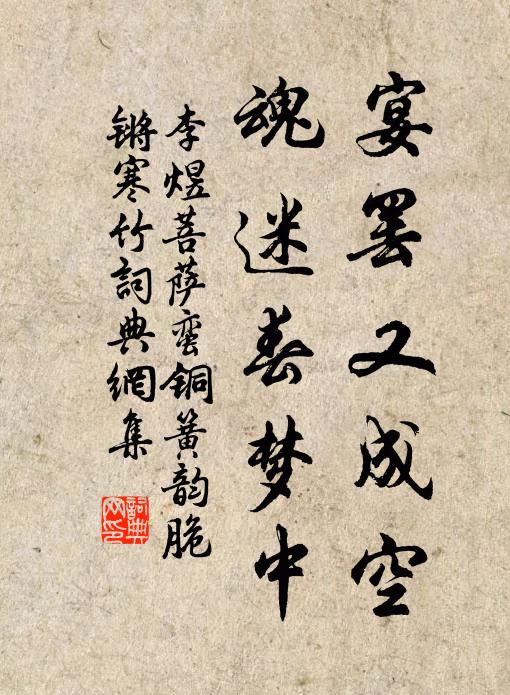 宴罢又成空
魂迷春梦中
李煜菩萨蛮铜簧韵脆
锵寒竹詞典網集
詞典网印